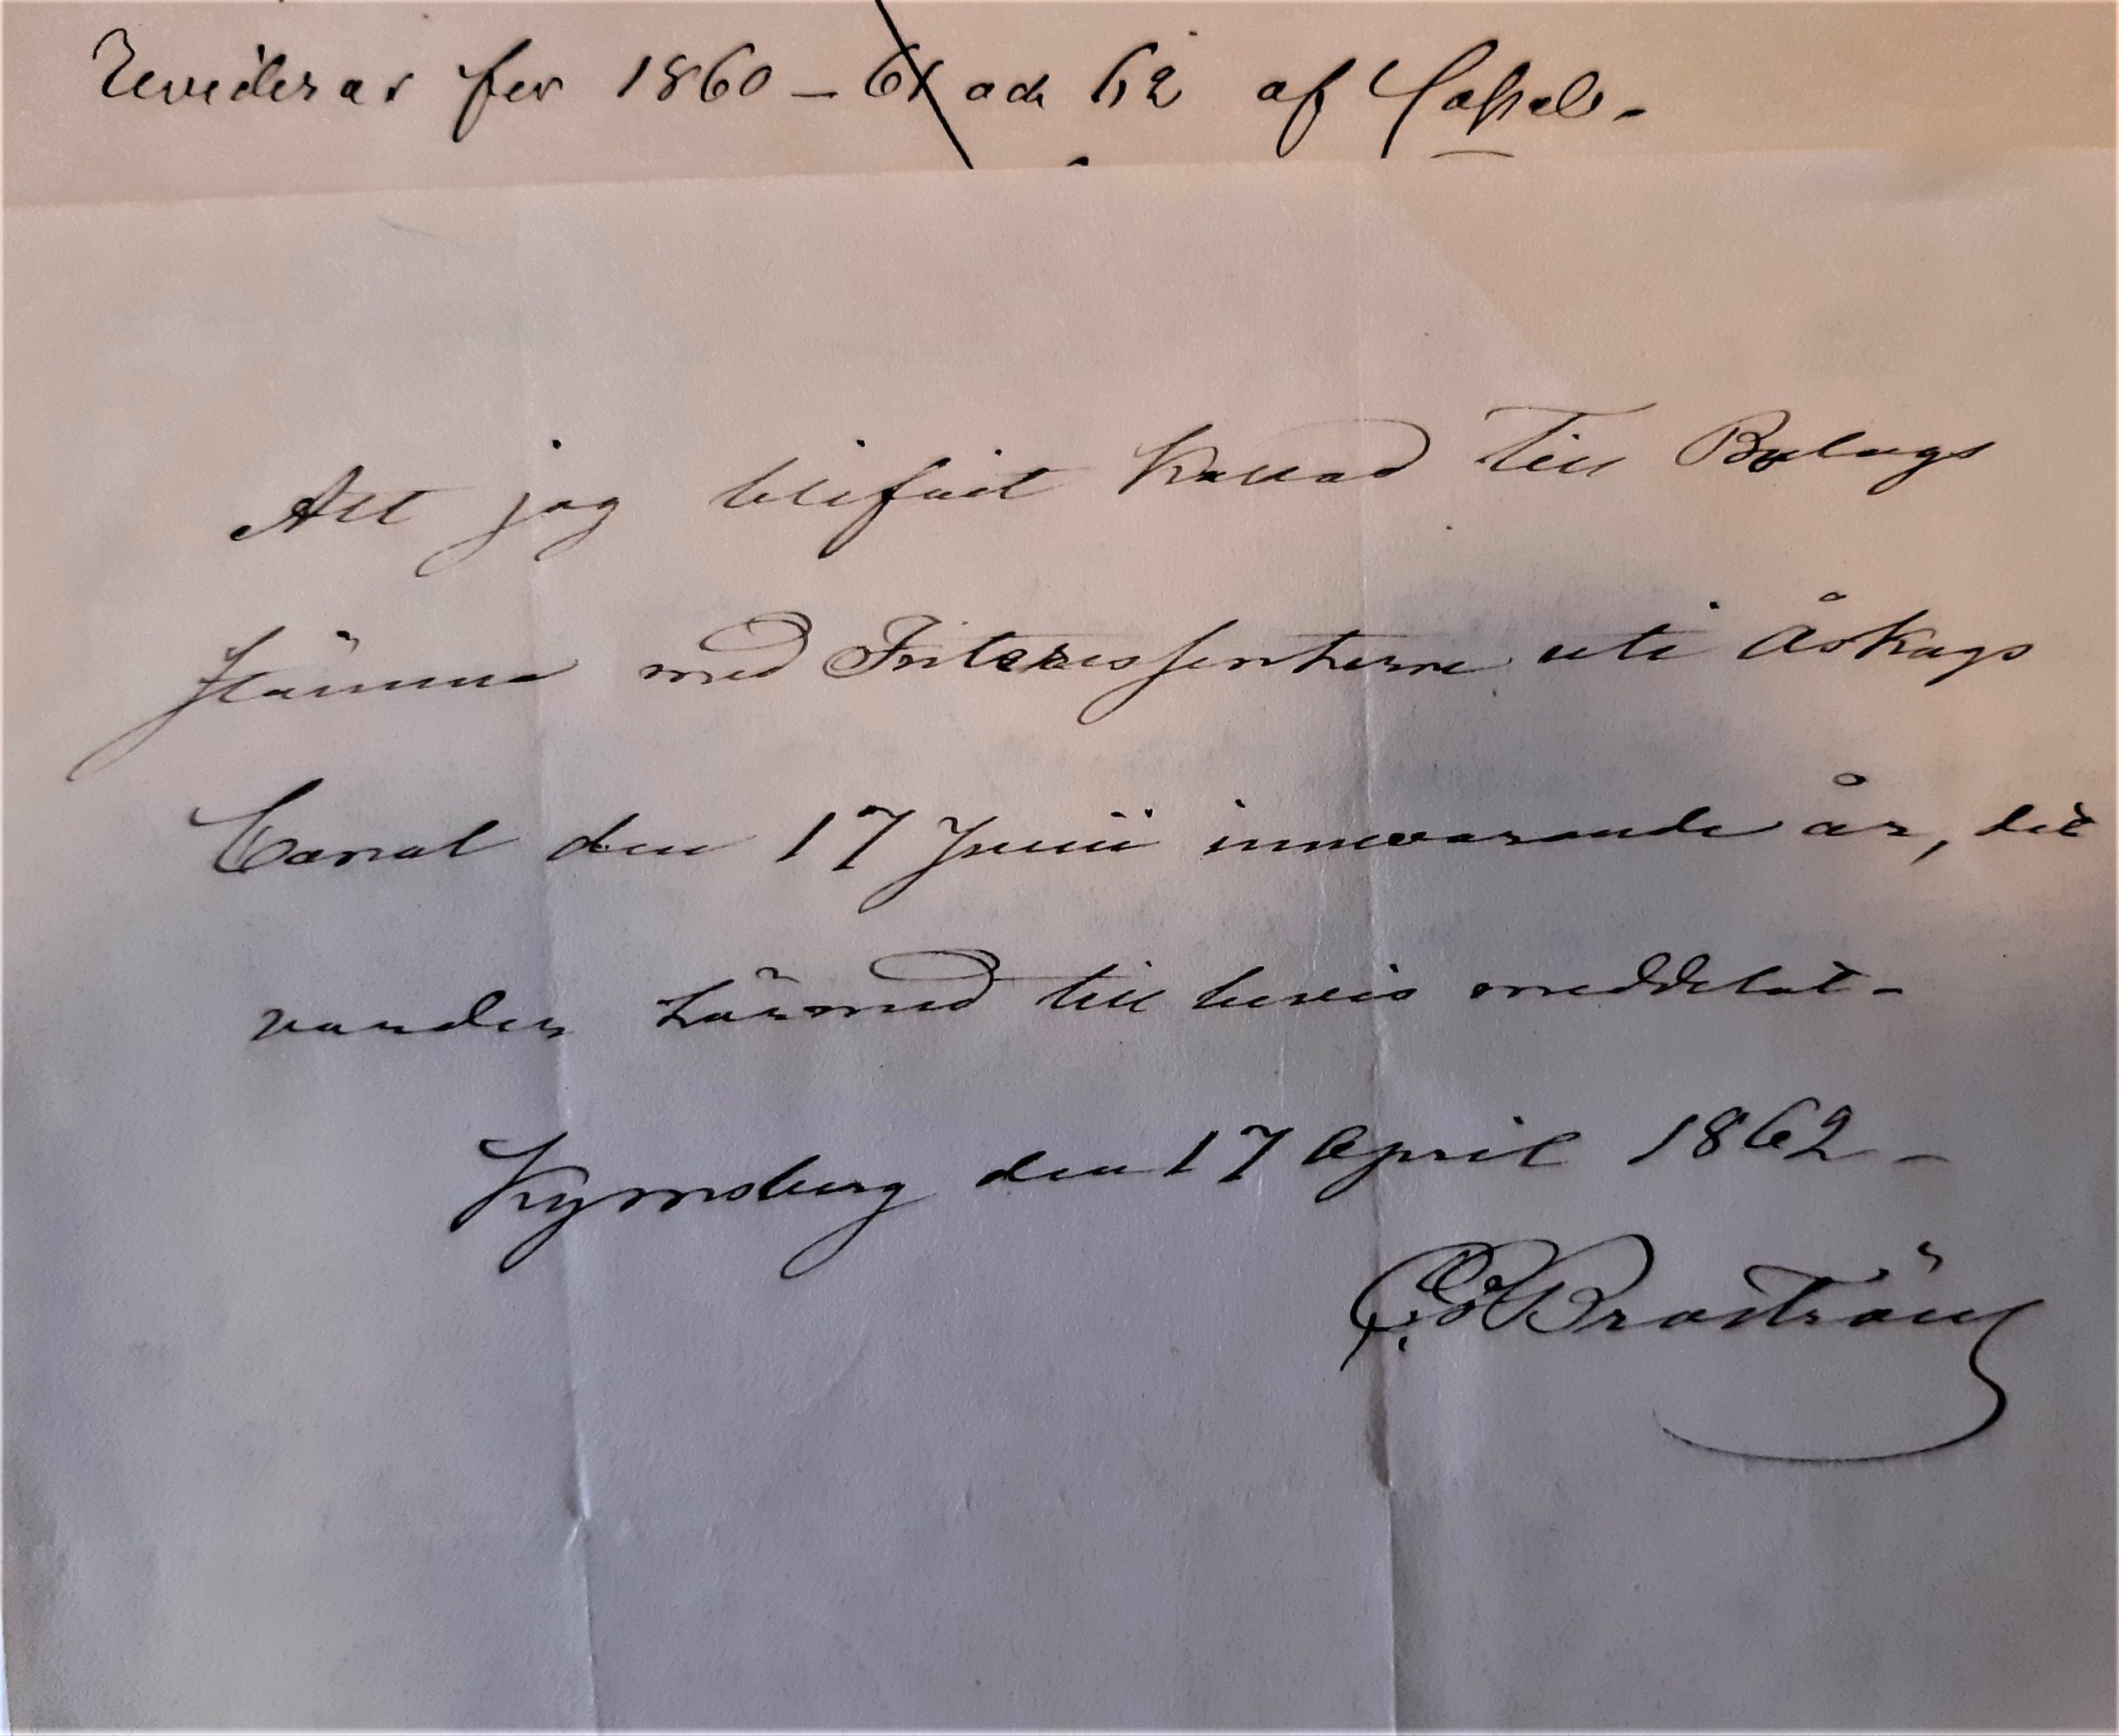 Reviderar för 1860 – 61 och 62 af Cassel.
Att jag blifvit Kallad Till Bolags
Stämma med Interessenterne uti Åskags
Canal den 17 Junii innevarande år, det
varder härmed till bevis meddelat –
Kymsberg den 17 April 1862 –
Broström